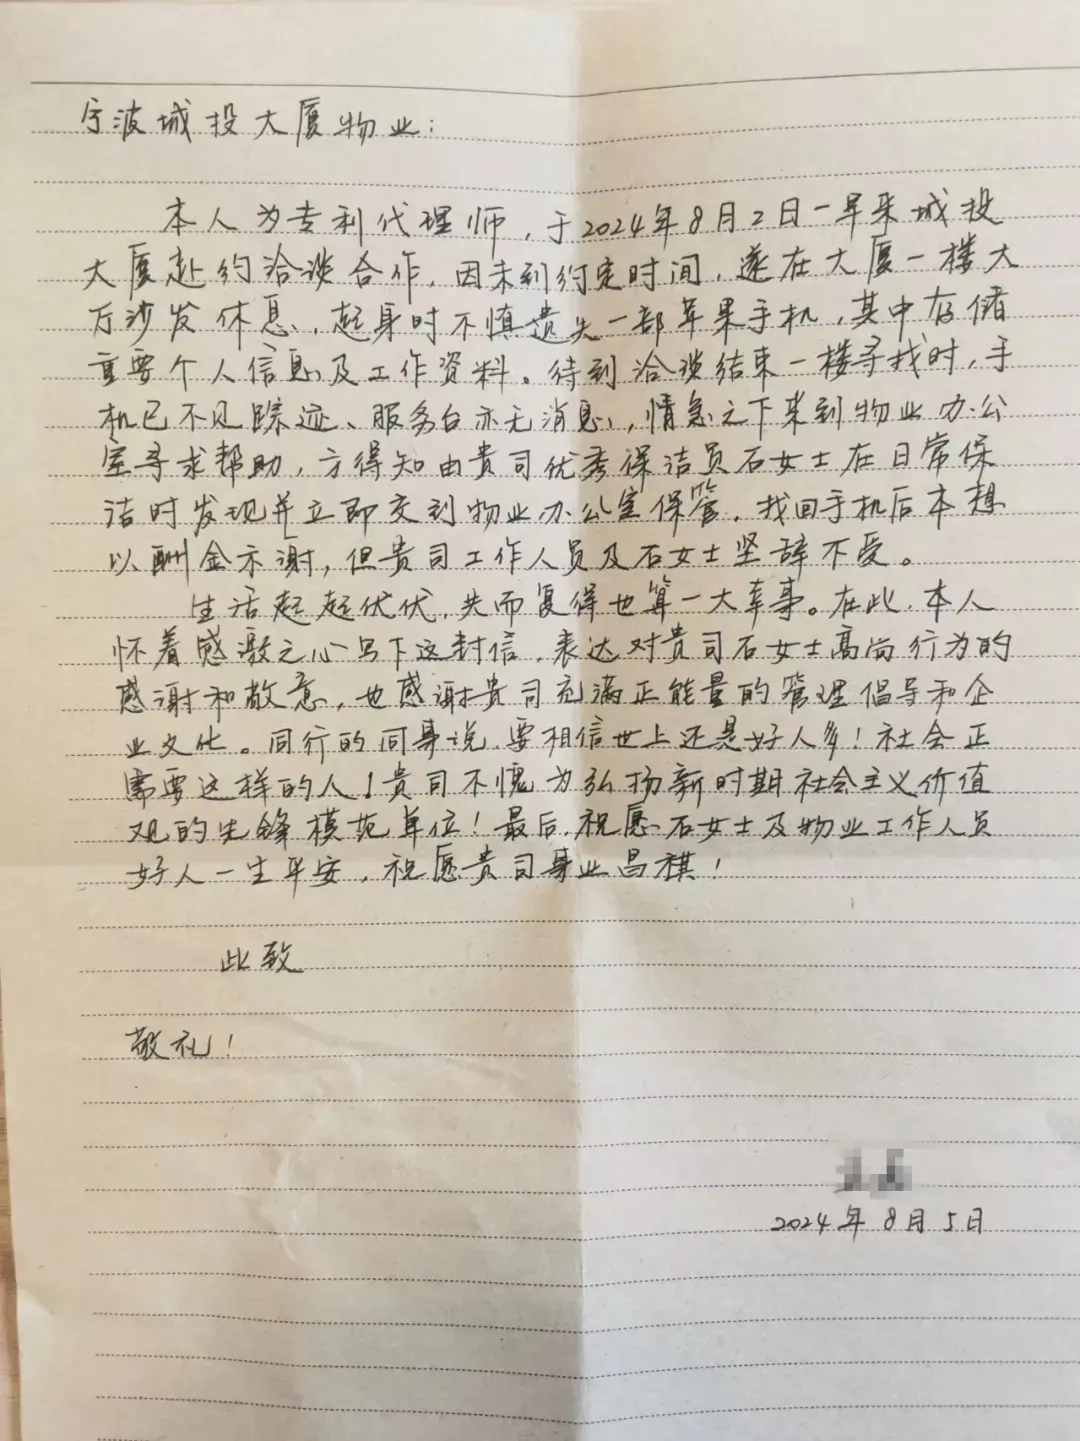 宁波城投大厦物业：
本人为专利代理师，于2024年8月2日一早来城投
大厦赴约洽谈合作，因未到约定时间，遂在大厦一楼大
厅沙发休息，起身时不慎遗失一部苹果手机，其中存储
重要个人信息及工作资料。待到洽谈结束一楼寻找时，手
机已不见踪迹、服务台亦无消息，情急之下来到物业办公
室寻求帮助，方得知由贵司优秀保洁员石女士在日常保
洁时发现并立即交到物业办公室保管，找回手机后本想
以酬金示谢，但贵司工作人员及石女士坚辞不受。
生活起起伏伏，失而复得也算一大幸事。在此，本人
怀着感激之心写下这封信，表达对贵司石女士高尚行为的
感谢和敬意，也感谢贵司充满正能量的管理倡导和企
业文化。同行的同事说，要相信世上还是好人多！社会正
需要这样的人！贵司不愧为弘扬新时期社会主义价值
观的先锋模范单位！最后，祝愿石女士及物业工作人员
好人一生平安，祝愿贵司事业昌祺！
此致
敬礼！
2024年8月5日